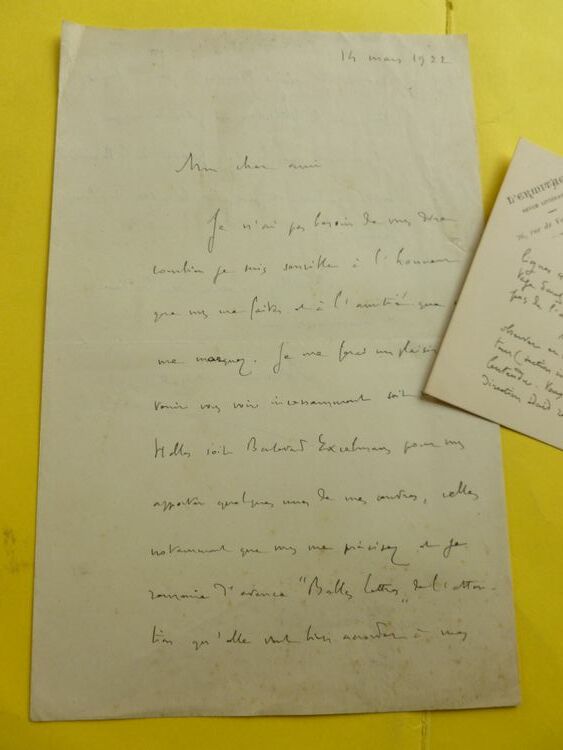 14 mars 1922
Mon cher ami
Je n'ai pas besoin de vous dire
combien je suis sensible à l'honneur
que vous me faites et à l'amitié que
me marquez. Je me ferai un plaisir
venir vous voir incessamment soit
Halles soit Boulevard Excelmans pour vous
apporter quelques unes de mes œuvres, celles
notamment que vous me précisez et je
remercie d'avance "Belles Lettres" de l'atten-
tion qu'elle veut bien accorder à mes
L'ERMITA
REVUE LITTÉRA
rue de
lignes
pas de
Directeur